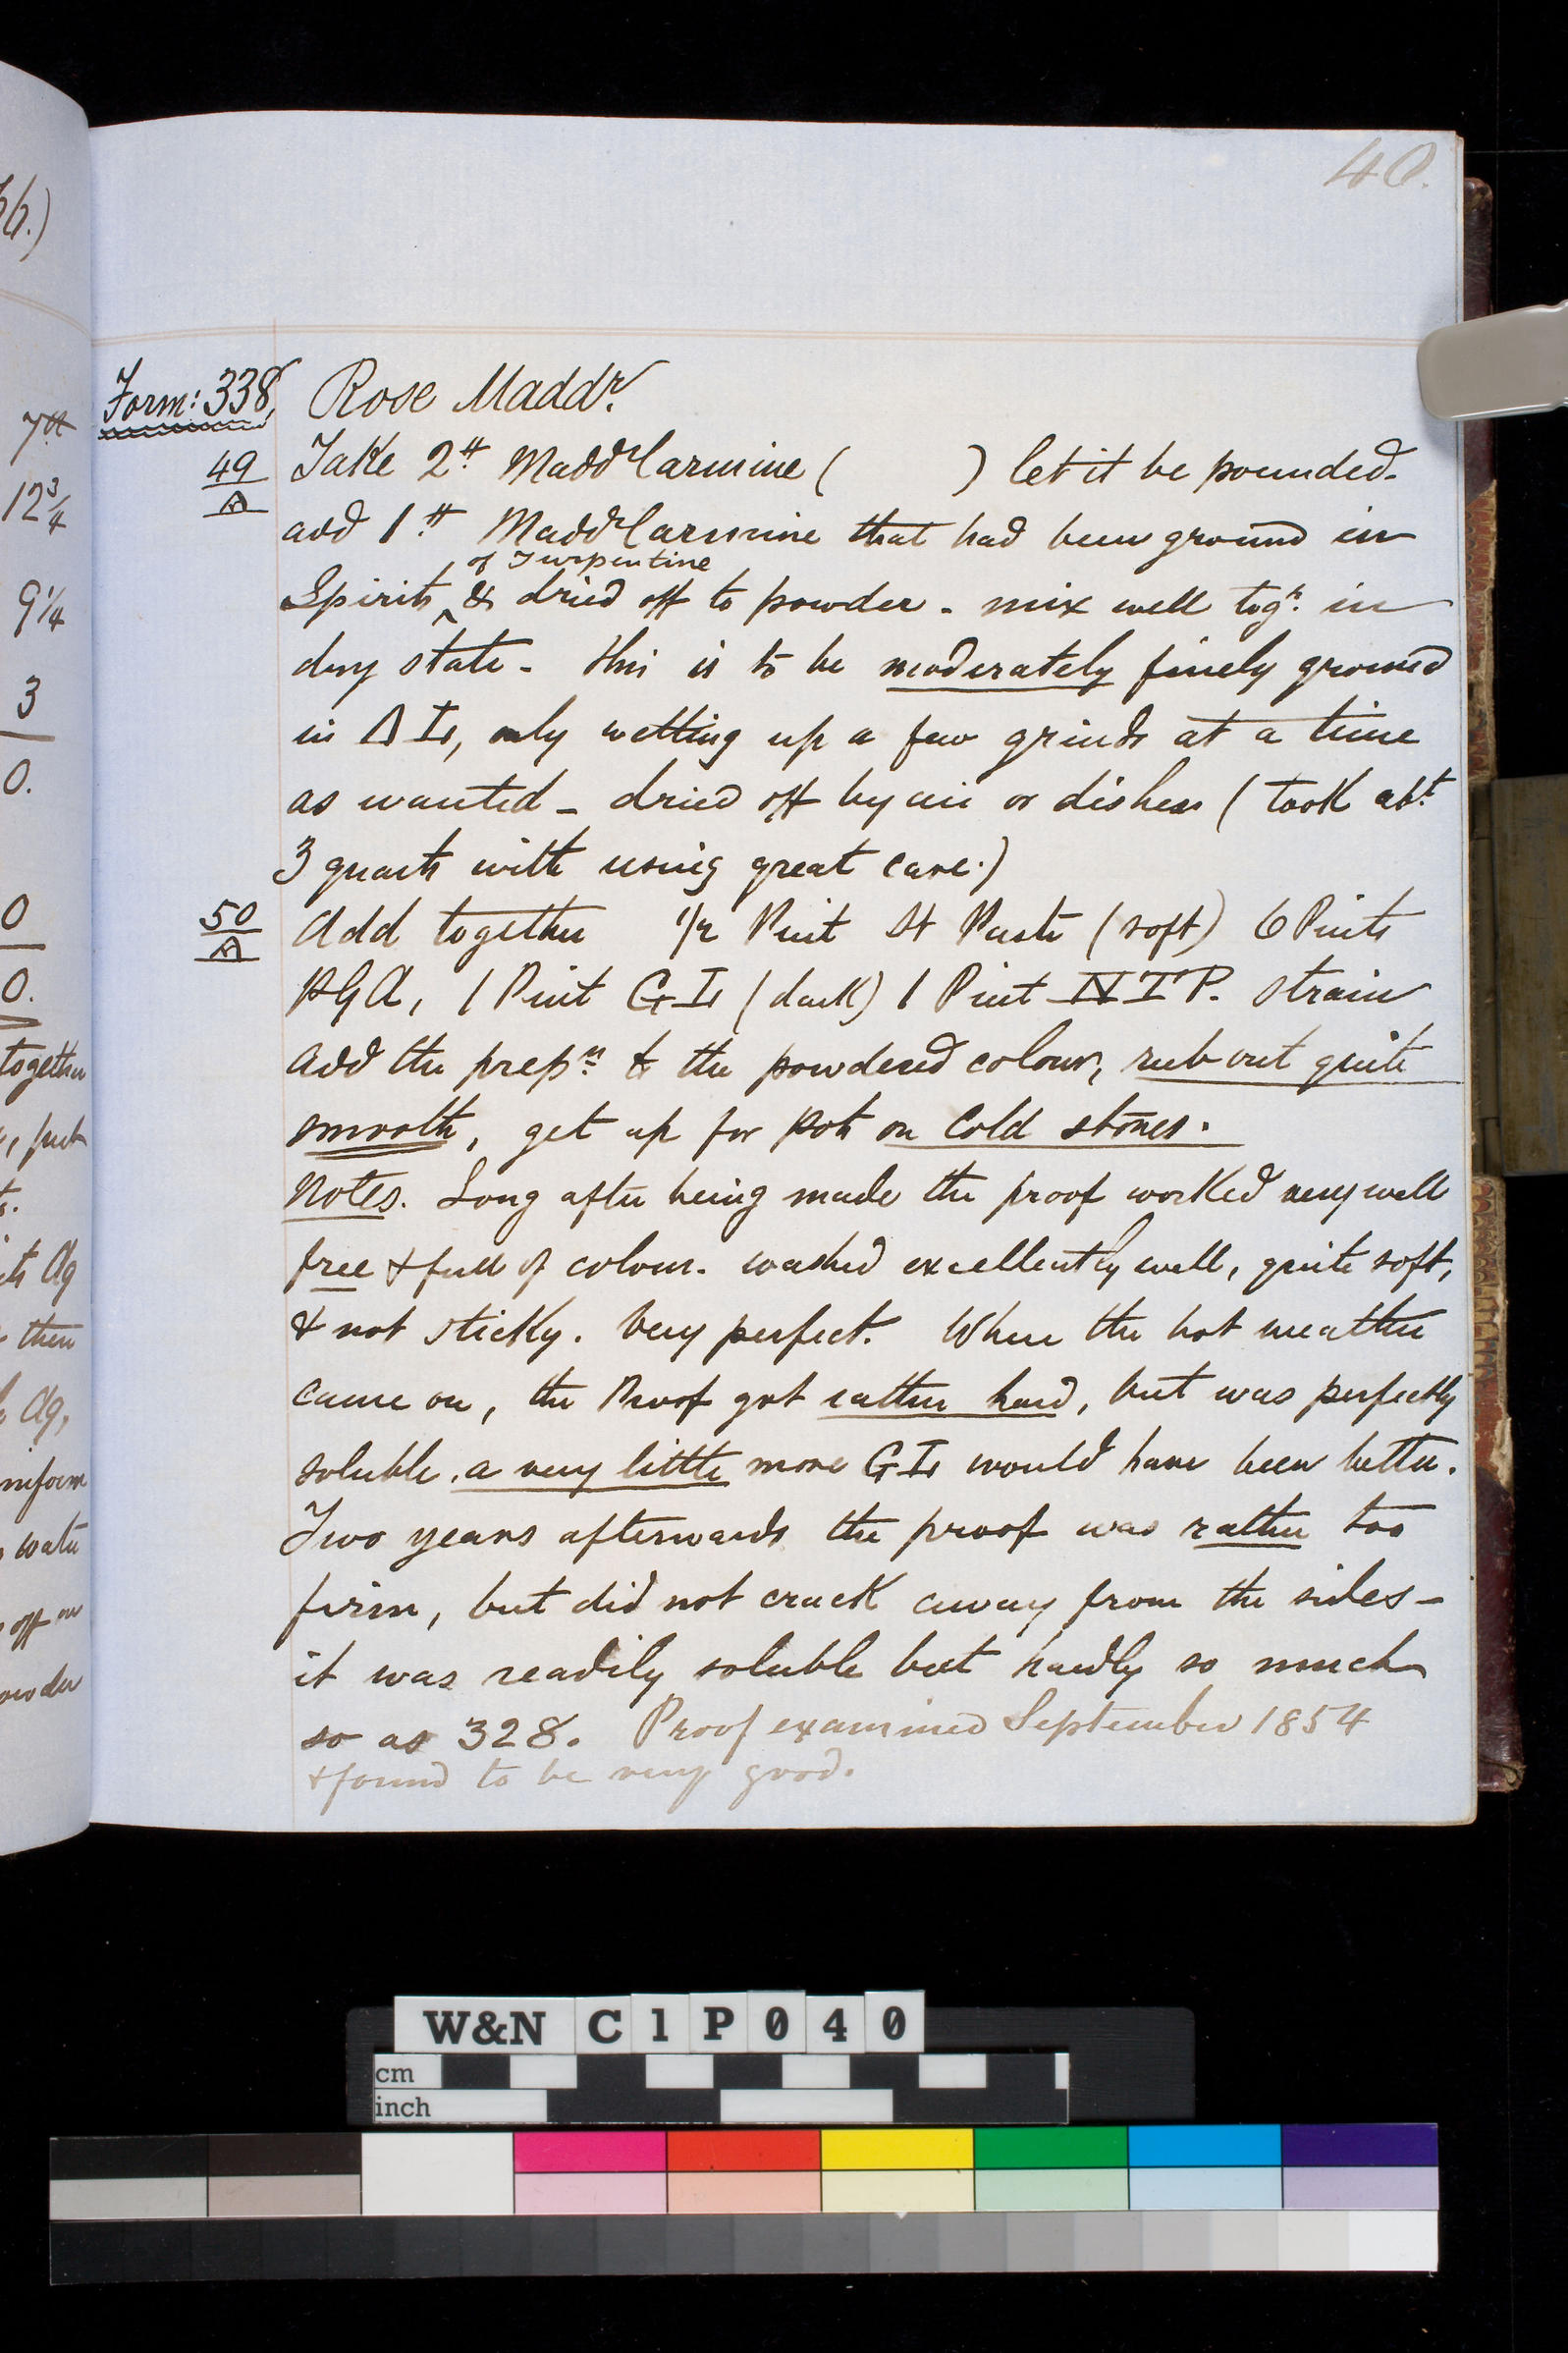 40.
Form: 338, Rose Maddr.
49
A
Take 2 lb Maddr Carmine ( ) let it be pounded.
add 1 lb Maddr Carmine that had been ground in
of Turpentine
Spirits & dried off to powder - mix well togr. in
dry state - this is to be moderately finely ground
in only wetting up a few grinds at a time
as wanted - dried off by air or dishes ( took abt.
3 quarts with using great care.)
50
A
Add together 1/2 Pint St Paste (soft) 6 Pints
1 Pint (dark) 1 Pint strain
add the prepn. to the powdered colour, rub out quite
smooth, get up for pots on Cold stones.
Notes. Long after being made the proof worked very well
free & full of colour. washed excellently well, quite soft,
& not sticky. Very perfect. When the hot weather
came on, the Proof got rather hard, but was perfectly
soluble, a very little more would have been better.
Two years afterwards the proof was rather too
firm, but did not crack away from the sides -
it was readily soluble but hardly so much
so as 328. Proof examined September 1854
& found to be very good.
6.)
7 lb
12 3/4
9 1/4
3
0.
0
0.
together
then
water
off on
W&N C1P040
cm
inch